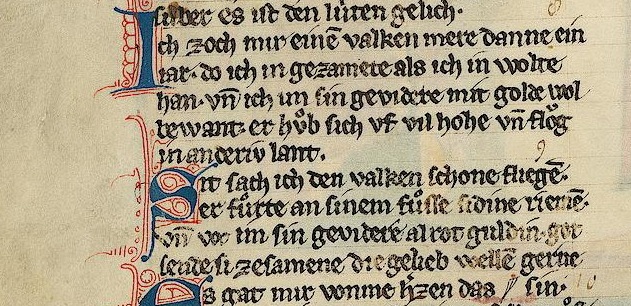 sulber es ist den lúten gelich·
Ich zoch mir einē valken mere danne ein
iar· do ich in gezamete als ich in wolte
han· vn̄ ich im sin gevidere mit golde wol
bewant· er hůb sich vf vil hohe vn̄ flǒg
in anderiv lant.
Sit sach ich den valken schone fliegē·
er fůrte an sinem fůsse sidine riemē·
vn̄ was im sin gevidere alrot guldin· got
sende si zesamene die gelieb wellē gerne
Es gat mir vonme h'zen das sin·